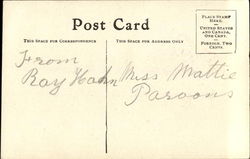 Post Card
THIS SPACE FOR CORRESPONDENCE
THIS SPACE FOR ADDRESS ONLY
PLACE STAMP
HERE
UNITED STATES
AND CANADA,
ONE CENT.
FOREIGN, TWO
CENTS.
From
Ray Hahn
Miss Mattie
Parsons